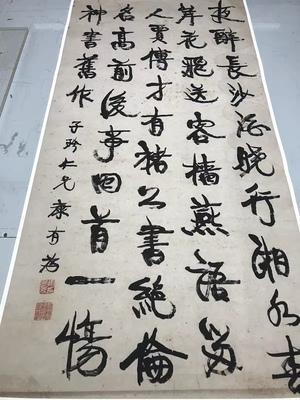 夜醉長沙酒曉行湘水春
岸花飛送客檣燕語留
人賈傅才有褚公書絕倫
名高前後事回首一傷
神書舊作
子珍仁兄 康有為